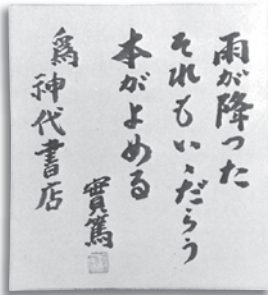 雨が降つた
それもいゝだらう
本がよめる
實篤
為神代書店